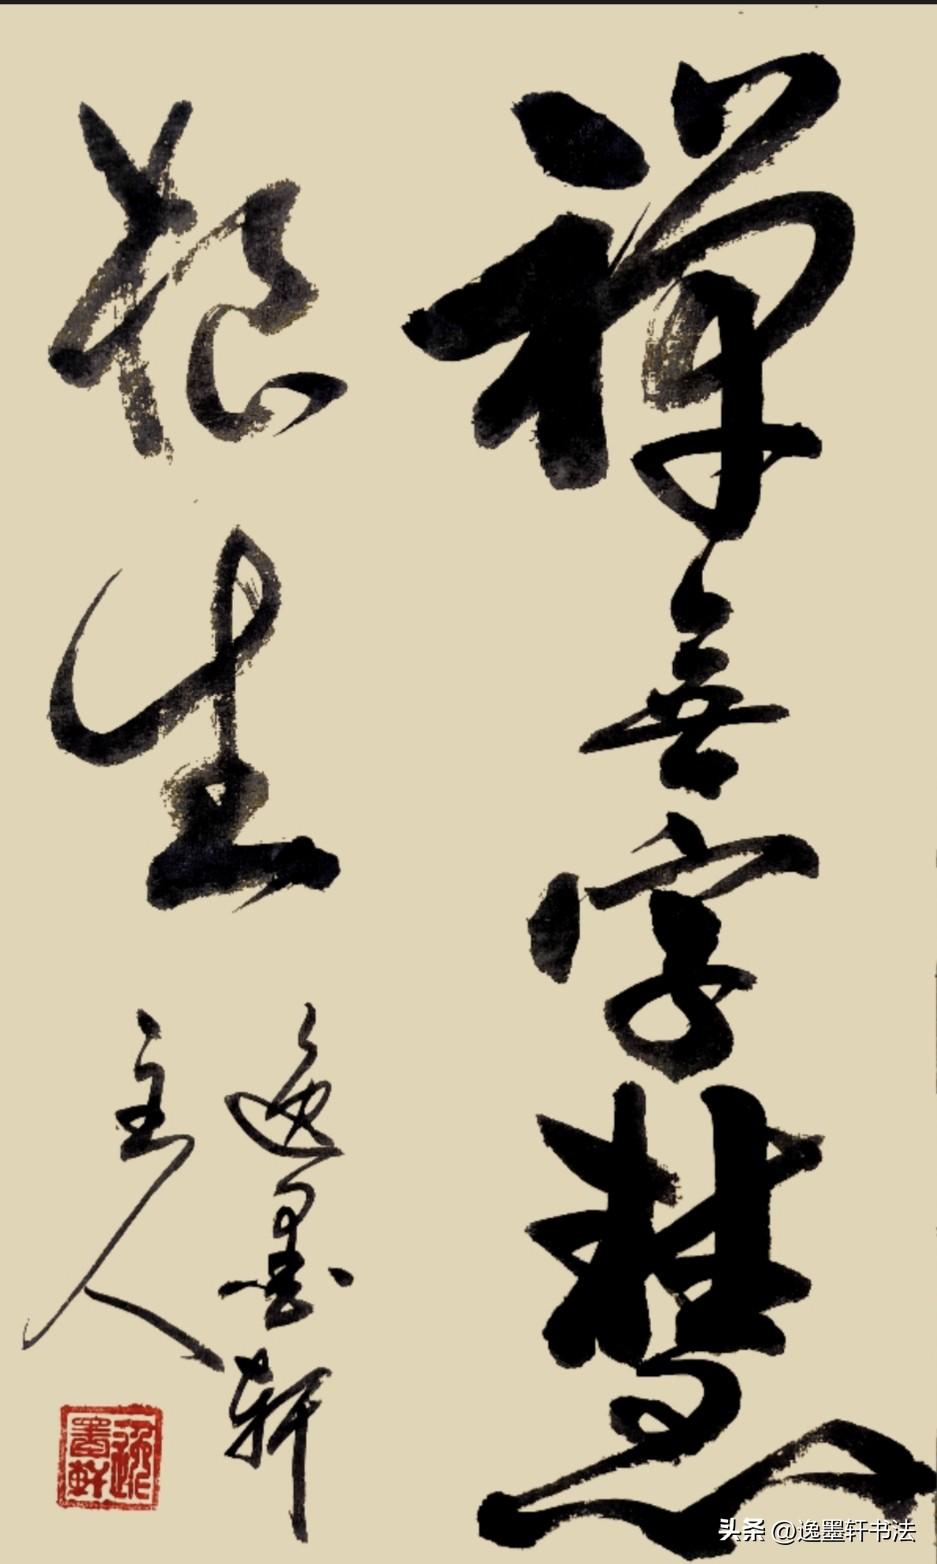 禅無字慧
根生
逸墨轩
主人
逸墨軒
头条 @逸墨轩书法